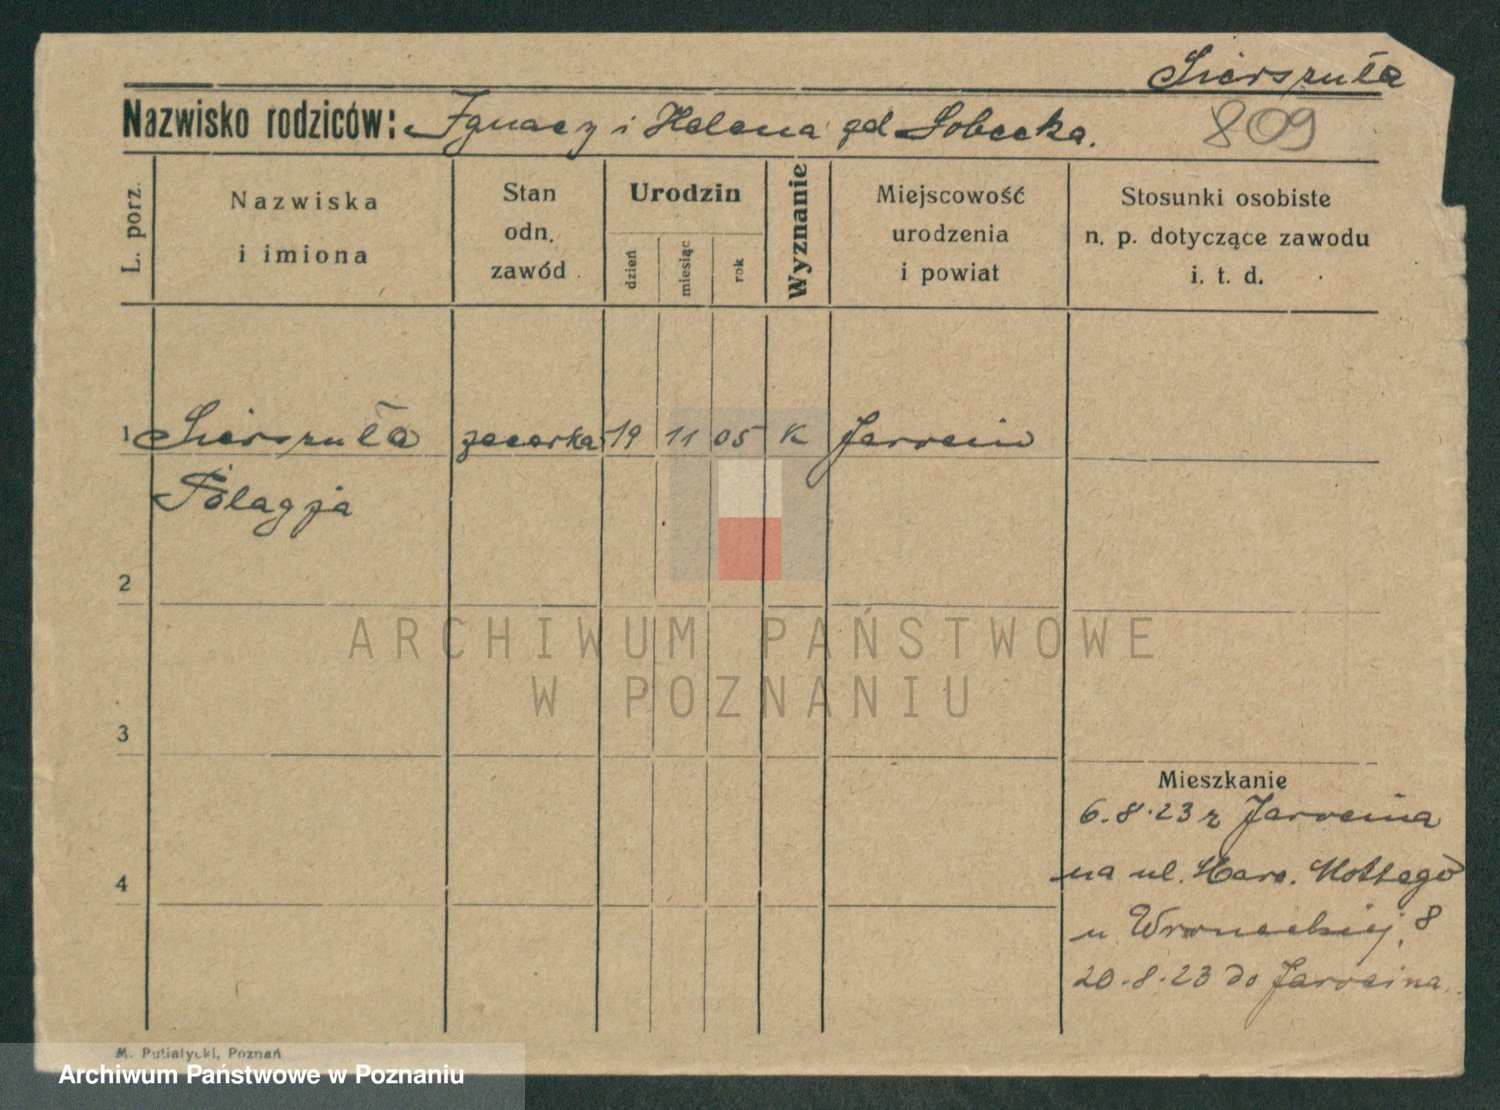 Sierszuła
Nazwisko rodziców: Ignacy i Helena zd Sobecka.
809
L. porz.
Nazwiska
i imiona
Stan
odn.
zawód
Urodzin
dzień
miesiąc
rok
Wyznanie
Miejscowość
urodzenia
i powiat
Stosunki osobiste
n. p. dotyczące zawodu
i. t. d.
1 Sierszuła zecerka 19 11 05 K Jarocin
Pelagja
2
ARCHIWUM PAŃSTWOWE
W POZNANIU
3
Mieszkanie
6.8.23 z Jarocina
na ul. Marc. Mottego
u Wroneckiej, 8
20.8.23 do Jarocina.
4
M. Putiatycki, Poznań
Archiwum Państwowe w Poznaniu